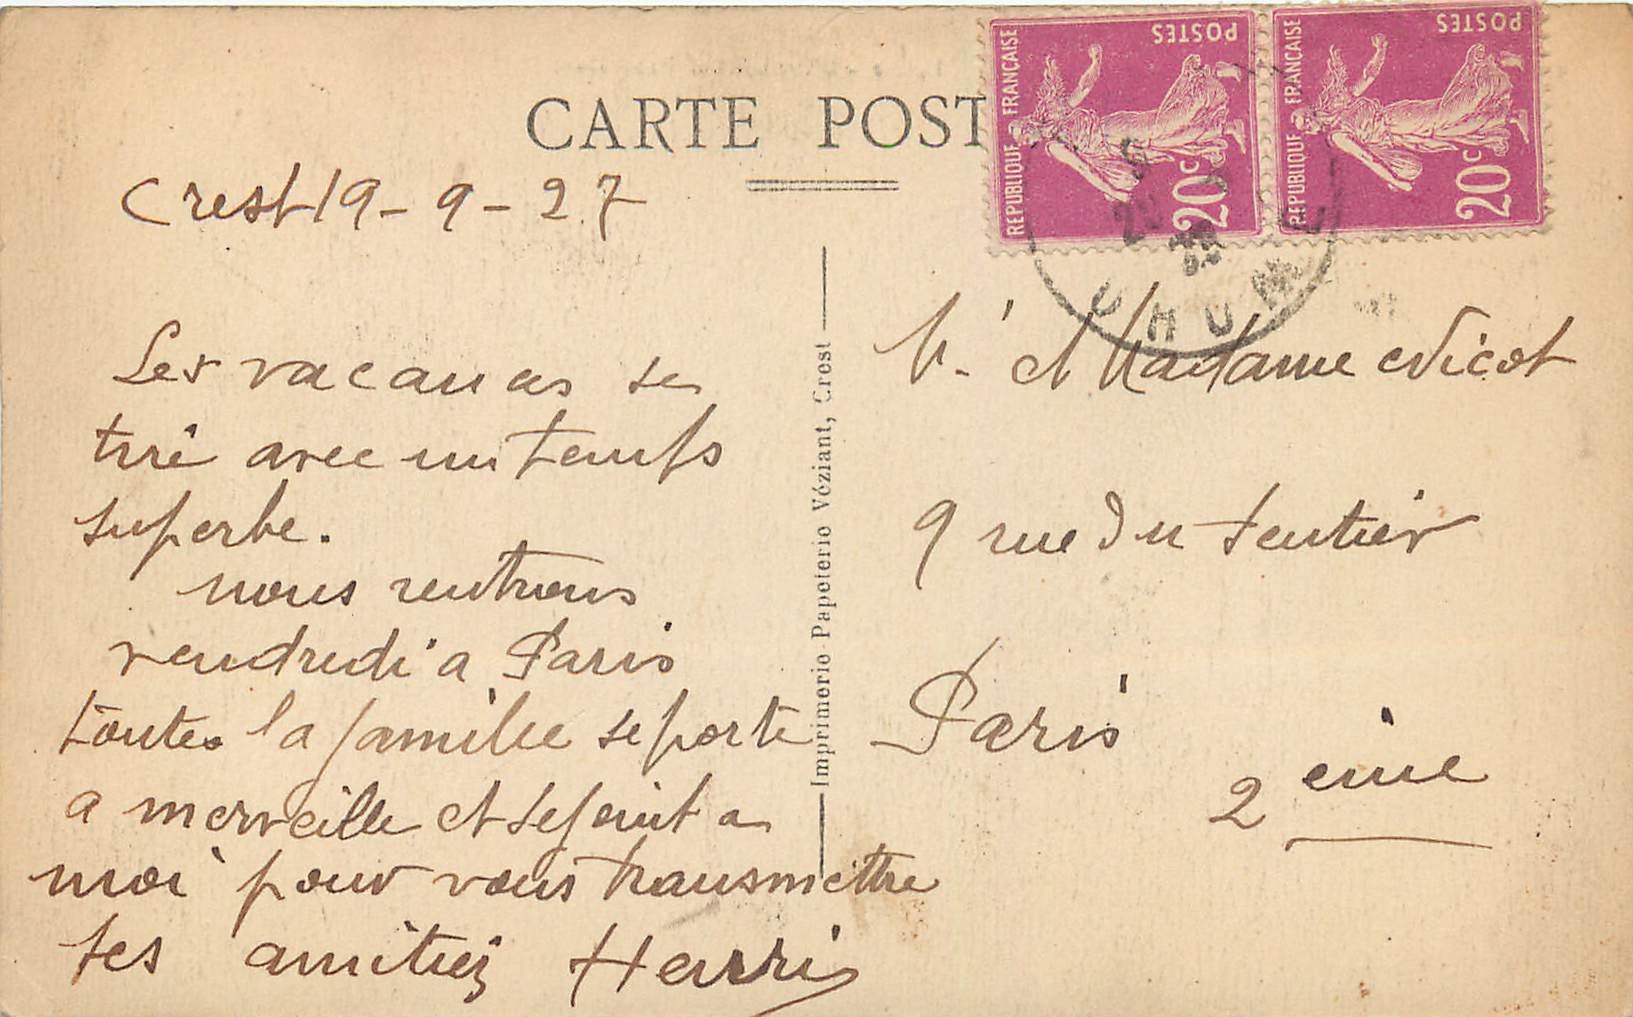 CARTE POST
POSTES
REPUBLIQUE FRANÇAISE
20c
POSTES
REPUBLIQUE FRANÇAISE
20c
Crest 19-9-27
Les vacances se
tire avec un temps
superbe.
nous rentrons
vendredi a Paris
toutes la famille se porte
a merveille et se joint a
moi pour vous transmettre
ses amitiés Henri
Imprimerie Papeterie Véziant, Crest
M. et Madame Nicot
9 rue du Sentier
Paris
2 eme